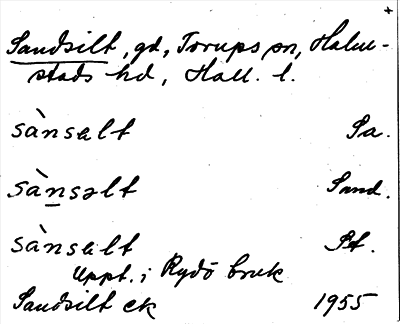 Sandsilt, gd, Torups sn, Halm-
stads hd, Hall. l.
sànsalt Sa.
sànsəlt Sand.
sànsalt St.
Uppt. i Rydö bruk
Sandsilt ek 1955